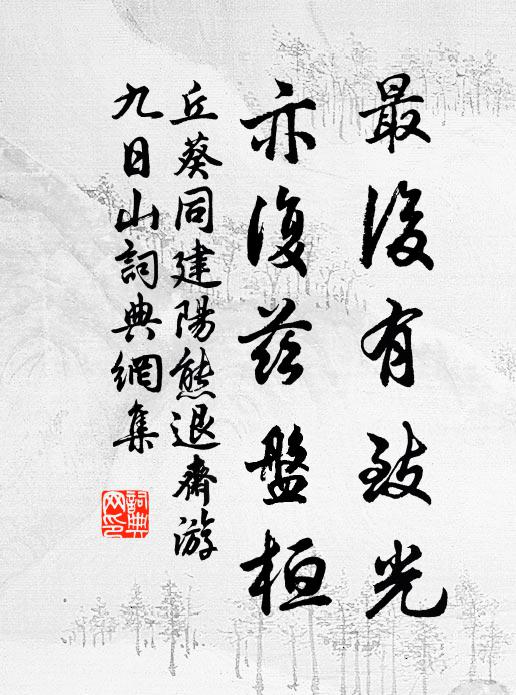 最後有致光
亦復茲盤桓
丘葵同建陽熊退齋游
九日山詞典網集
詞典网印